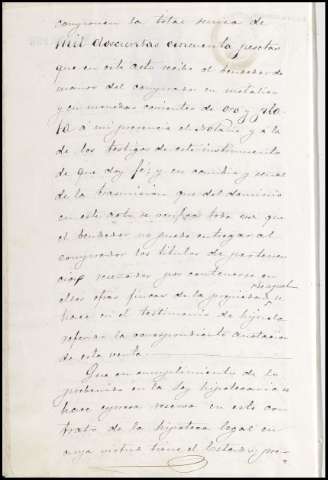 componen la total suma de
mil doscientas cincuenta pesetas
que en este acto recibe el vendedor de
manos del comprador en metalico
y en monedas corrientes de oro y pla-
ta á mi presencia el Notario y á la
de los testigos de este instrumento
de que doy fé; y en cambio y señal
de la trasmision que del dominio
en este acto se verifica toda vez que
el vendedor no puede entregar al
comprador los titulos de pertenen
cia reseñados por contenerse en
ellos otras fincas de la propiedad de
hace en el testimonio de hijuela
referido la correspondiente anotacion
de esta venta.
Que en cumplimiento de lo
prevenido en la Ley hipotecaria se
hace espresa reserva en este con
trato de la hipoteca legal en
cuya virtud tiene el Estado, pro-